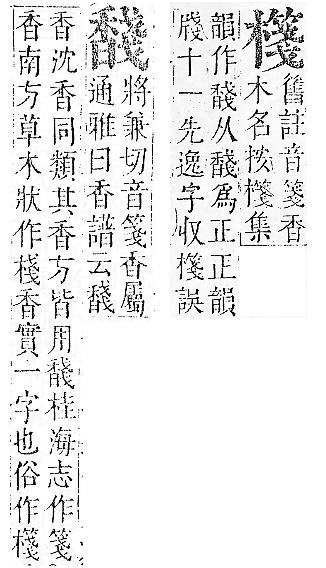 㯠
舊註音箋香
木名按㯠集
韻作馢从馢爲正正韻
牋十一先逸字收㯠誤
馢
將兼切音箋香屬
通雅曰香譜云馢
香沈香同類其香方皆用馢桂海志作箋
香南方草木狀作棧香實一字也俗作㯠